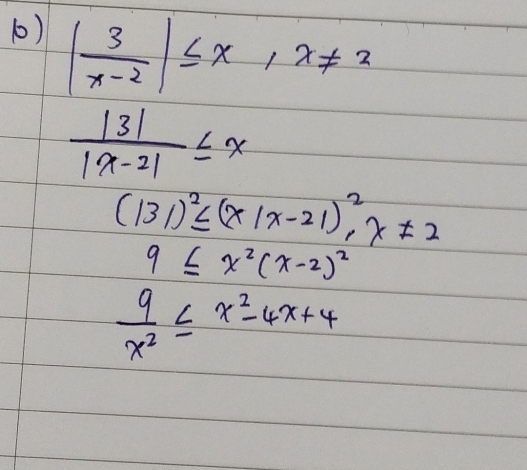 b) |3/(x-2)| ≤ x , x ≠ 2
|3|/|x-2| ≤ x
(|3|)² ≤ (x|x-2|)², x ≠ 2
9 ≤ x²(x-2)²
9/x² ≤ x²-4x+4